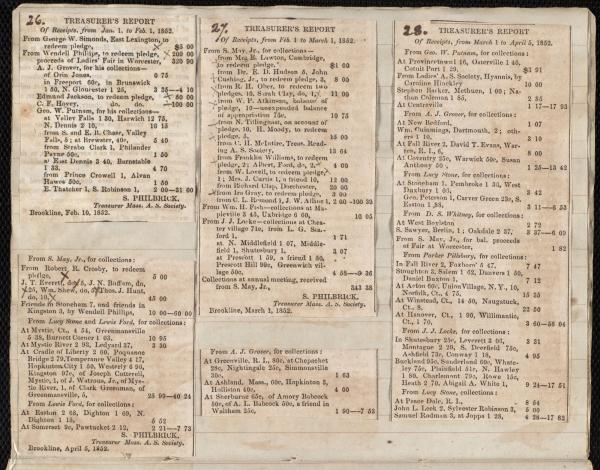 26.
TREASURER'S REPORT
Of Receipts, from Jan. 1, to Feb. 1, 1852.
From George W. Simonds, East Lexington, to
redeem pledge, $5 00
From Wendell Phillips, to redeem pledge, 200 00
proceeds of Ladies' Fair in Worcester, 320 90
A. J. Grover, for his collections—
of Orin Jones, 0 75
in Freeport 60c, in Brunswick
1 50, N. Gloucester 1 25, 3 35—4 10
Edmund Jackson, to redeem pledge, 50 00
C. F. Hovey, do. do. 100 00
Geo. W. Putnam, for his collections—
at Valley Falls 1 30, Harwich 12 75,
N. Dennis 2 10, 16 15
from S. and E. B. Chase, Valley
Falls, 5; at Brewster, 40c, 5 40
from Strabo Clark 1, Philander
Payne 50c, 1 50
at East Dennis 3 40, Barnstable
1 33, 4 70
from Prince Crowell 1, Alvan
Hawes 50c, 1 50
E. Thatcher 1, S. Robinson 1, 2 00—31 00
S. PHILBRICK,
Treasurer Mass. A. S. Society.
Brookline, Feb. 10, 1852.
From S. May, Jr., for collections:
From Robert R. Crosby, to redeem
pledge, 5 00
J. T. Everett, do, 5, J. N. Buffum, do,
25, Wm. Shew, do, 5, Thos. J. Hunt,
do, 10, 45 00
Friends in Stoneham 7, and friends in
Kingston 3, by Wendell Phillips, 10 00—60 00
From Lucy Stone and Lewis Ford, for collections:
At Mystic, Ct., 4 54, Greenmansville
5 38, Burnett Corner 1 03, 10 95
At Mystic River 2 93, Ledyard 37, 3 30
At Cradle of Liberty 2 00, Poquanoc
Bridge 2 79, Temperance Valley 4 17,
Hopkins City 1 00, Westerly 6 90,
Kingston 97c, of Joseph Cottrell,
Mystic, 1, of J. Watrous, Jr., of Mystic
River, 1, of Clark Greenman, of
Greenmansville, 5, 25 99—40 24
From Lewis Ford, for collections:
At Easton 2 68, Dighton 1 69, N.
Dighton 1 15, 5 52
At Somerset 9c, Pawtucket 2 12, 2 21—7 73
S. PHILBRICK,
Treasurer Mass. A. S. Society.
Brookline, April 5, 1852.
27.
TREASURER'S REPORT
Of Receipts, from Feb. 1 to March 1, 1852.
From S. May, Jr., for collections—
from Mrs H. Lawton, Cambridge,
to redeem pledge, $1 00
from Dr. E. D. Hudson 5, John
Cushing, Jr., to redeem pledge, 3, 8 00
from R. H. Ober, to redeem two
pledges, 15, Sarah Clay, do, 1, 16 00
from W. P. Atkinson, balance of
pledge, 10—unexpended balance
of appropriation 75c, 10 75
from N. Tillinghast, on account of
pledge, 10, H. Moody, to redeem
pledge, 5, 15 00
from C. H. McIntire, Treas. Reading
A. S. Society, 13 64
from Franklin Williams, to redeem
pledge, 2; Albert Ford, do, 2, 4 00
from W. Lovell, to redeem pledge,
1; Mrs J. Curtis 1, a friend 10, 12 00
from Richard Clap, Dorchester, 20 00
from Ira Gray, to redeem pledge, 3 00
from C. L. Remond 1, J. W. Alden 1, 2 00—108 39
From Wm. H. Fish—collections at Mapleville
3 45, Uxbridge 6 60, 10 05
From J J Locke—collections at Chester
village 71c, from L. G. Sanford
1, 1 71
at N. Middlefield 1 07, Middlefield
1, Shutesbury 1, 3 07
at Prescott 1 59, a friend 1 50,
Prescott Hill 99c, Greenwich village
50c, 4 58—9 36
Collections at annual meeting, received
from S. May, Jr., 343 38
S. PHILBRICK,
Treasurer Mass. A. S. Society.
Brookline, March 1, 1852.
From A. J. Grover, for collections:
At Greenville, R. I., 80c, at Chepachet
28c, Nightingale 25c, Simmonsville
30c, 1 63
At Ashland, Mass., 60c, Hopkinton 3,
Holliston 40c, 4 00
At Sherburne 65c, of Amory Babcock
50c, of A. L. Babcock 50c, a friend in
Waltham 25c, 1 90—7 53
28.
TREASURER'S REPORT
Of Receipts, from March 1 to April 5, 1852.
From Geo. W. Putnam, for collections:
At Provincetown 16, Osterville 1 46,
Cotuit Port 1 29, $1 91
From Ladies' A. S. Society, Hyannis, by
Caroline Hinckley 10 00
Stephen Barker, Methuen, 1 00; Nathan
Coleman 1 85, 2 85
At Centreville 1 17—17 93
From A. J. Grover, for collections:
At New Bedford, 1 07
Wm. Cummings, Dartmouth, 2; others
1 10, 3 10
At Fall River 2, David T. Evans, Warren,
R. I., 6, 8 00
At Coventry 25c, Warwick 50c, Susan
Anthony 50, 1 25—13 42
From Lucy Stone, for collections:
At Stoneham 1, Pembroke 1 36, West
Duxbury 1 06, 3 42
Geo. Peterson 1, Carver Green 23c, S.
Easton 1 88, 3 11—6 53
From D. S. Whitney, for collections:
At West Boylston 2 72
S. Sawyer, Berlin, 1; Oakdale 2 37, 3 37—6 09
From S. May, Jr., for bal. proceeds
of Fair at Worcester, 1 82
From Parker Pillsbury, for collections:
In Fall River 2, Foxboro' 5 47, 7 47
Stoughton 3, Salem 1 62, Danvers 1 50,
Daniel Buxton 1, 7 12
At Acton 60c, Union Village, N. Y., 10,
Norfolk, Ct., 4 75, 15 35
At Winstead, Ct., 14 50, Naugatuck,
Ct., 8, 22 50
At Hanover, Ct., 1 90, Willimantic,
Ct., 1 70, 3 60—56 04
From J. J. Locke, for collections:
In Shutesbury 25c, Leverett 3 06, 3 31
Montague 2 29, S. Deerfield 75c,
Ashfield 73c, Conway 1 18, 4 95
Buckland 93c, Sunderland 60c, Whateley
75c, Plainfield 51c, N. Hawley
1 80, Charlemont 79c, Rowe 15c,
Heath 2 70, Abigail A. White 1, 9 24—17 51
From Lucy Stone, collections:
At Peace Dale, R. I., 8 54
John L. Lock 2, Sylvester Robinson 3, 5 00
Samuel Rodman 3, at Joppa 1 28, 4 28—17 82